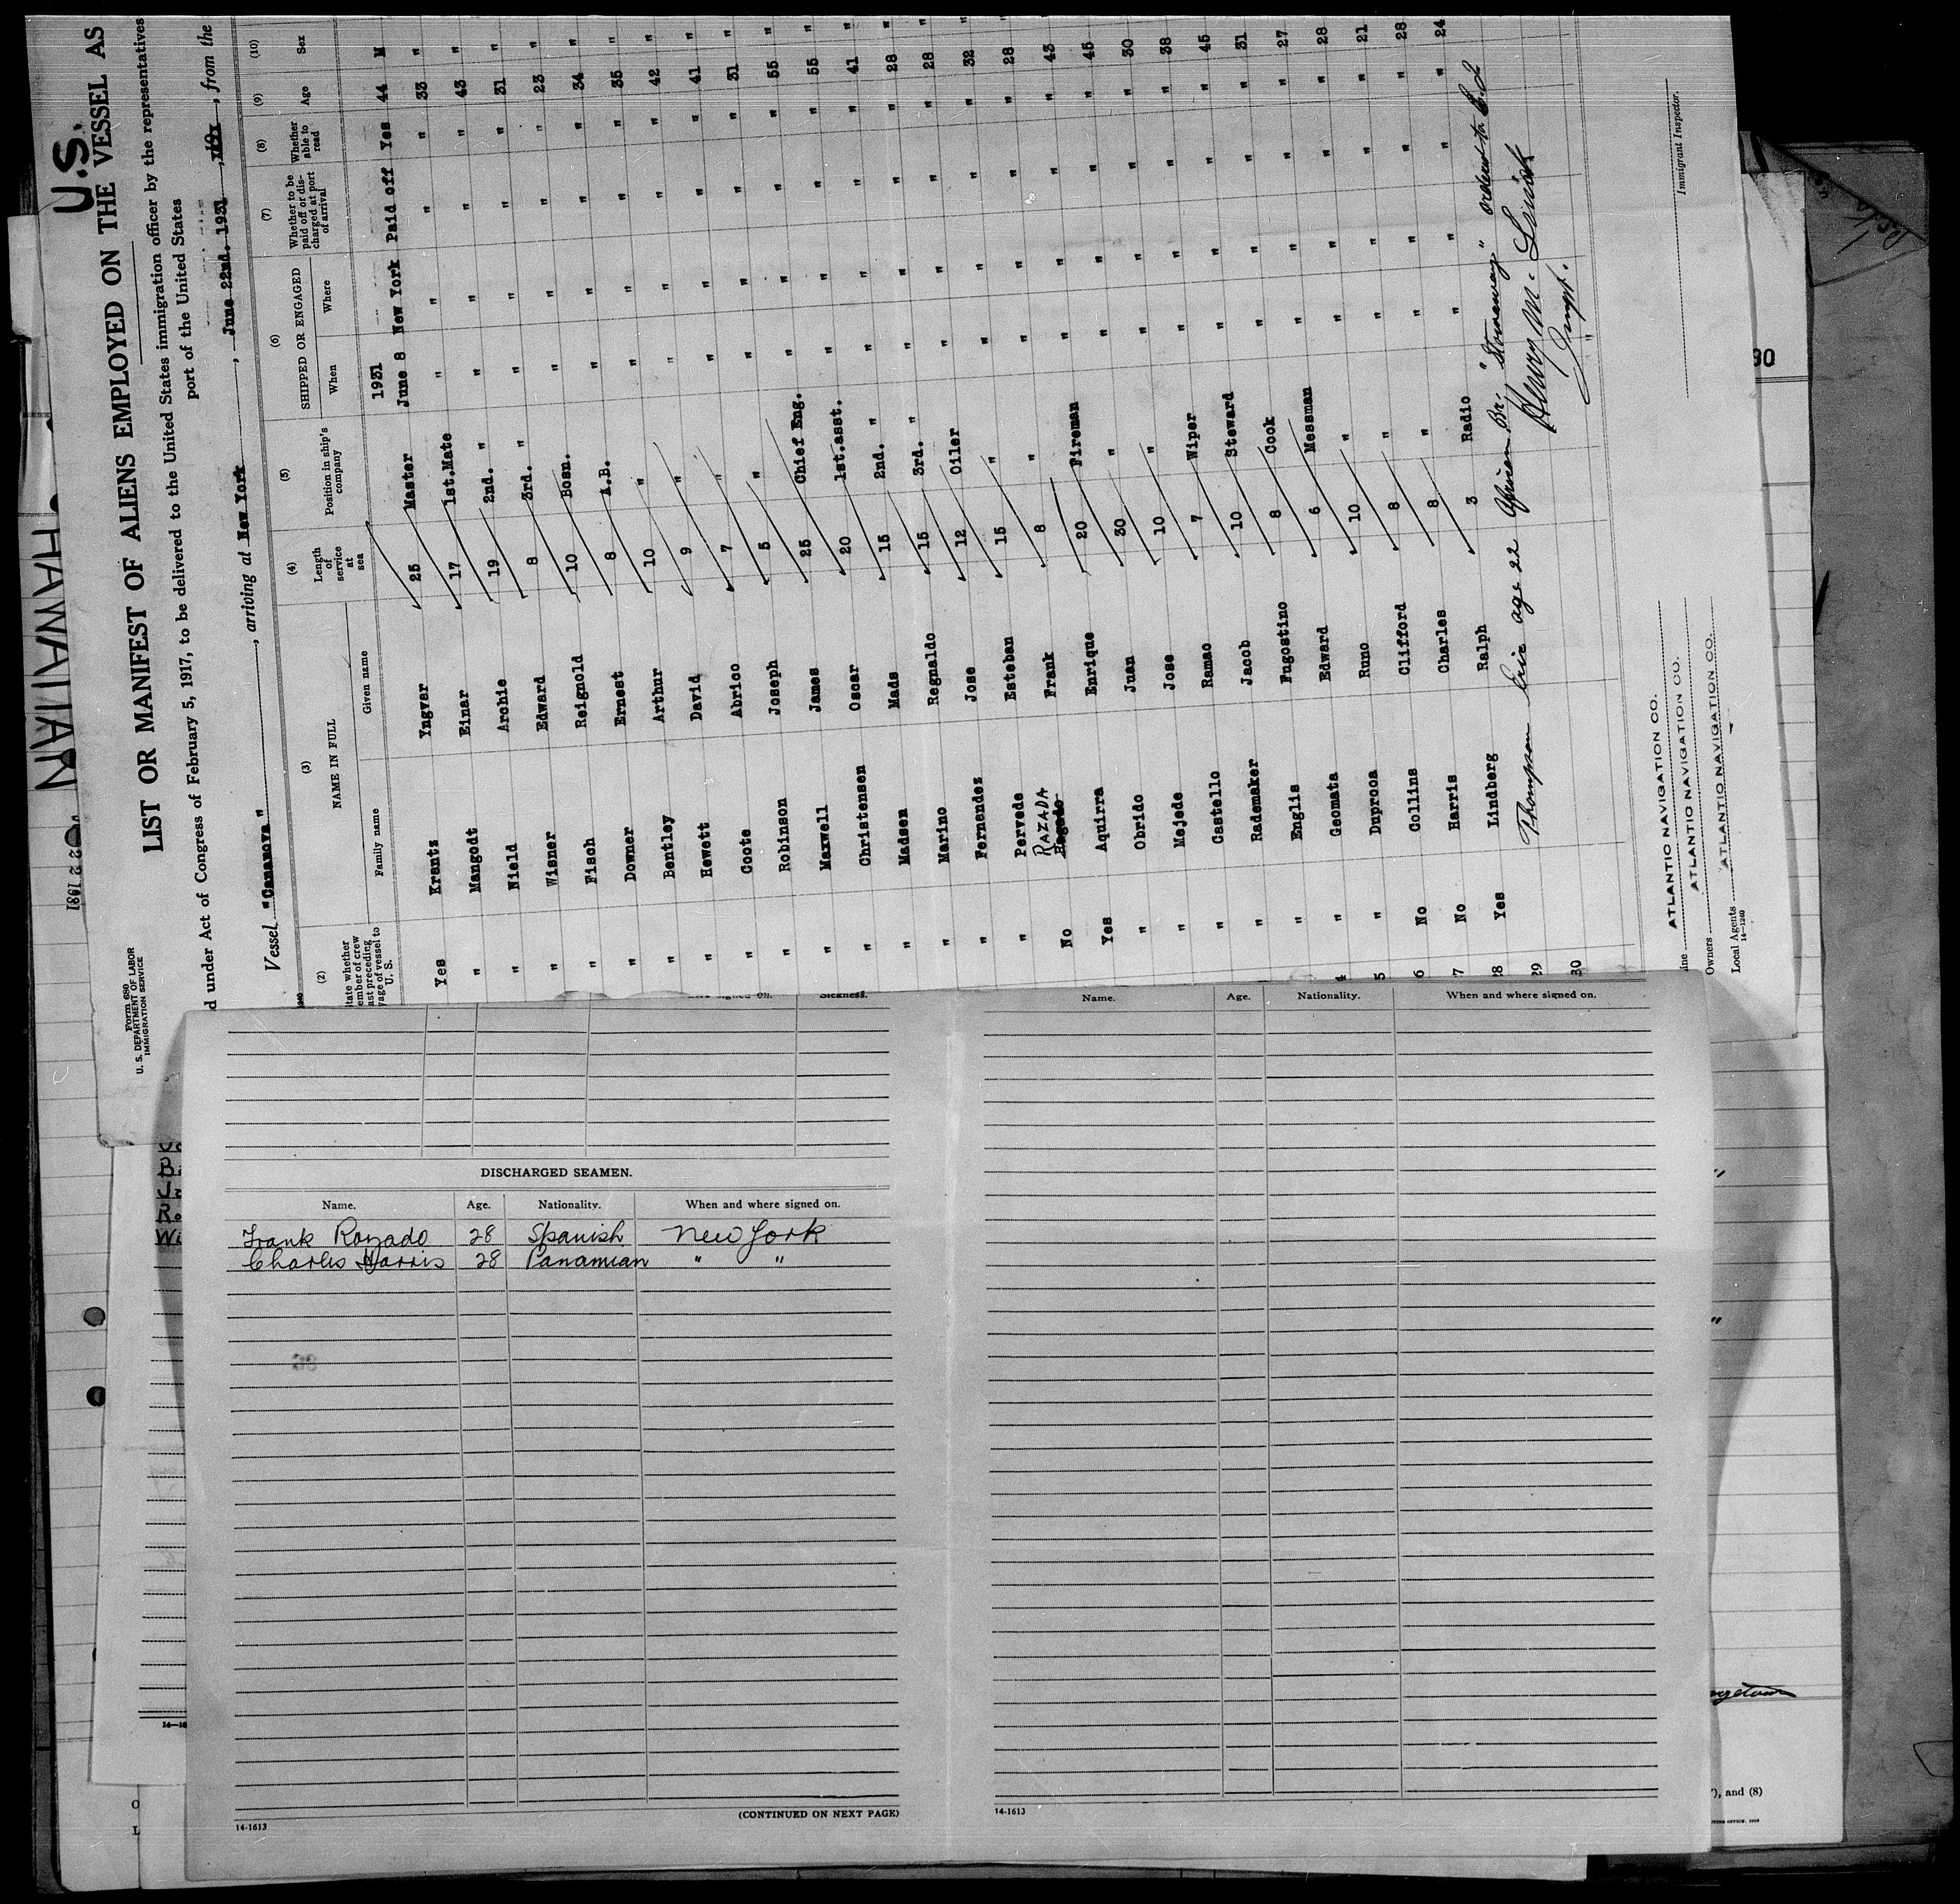 HAWAIIAN
22 1931
U.S.
Form 680
U. S. DEPARTMENT OF LABOR
IMMIGRATION SERVICE
LIST OR MANIFEST OF ALIENS EMPLOYED ON THE VESSEL AS
d under Act of Congress of February 5, 1917, to be delivered to the United States immigration officer by the representatives
port of the United States
Vessel "Cananova", arriving at New York, June 22nd. 1931, 19x, from the
(2) (3) (4) (5) (6) (7) (8) (9) (10)
tate whether
ember of crew
ast preceding
yage of vessel to
U. S.
NAME IN FULL
Family name Given name
Length of service at sea
Position in ship's company
SHIPPED OR ENGAGED
When Where
Whether to be paid off or discharged at port of arrival
Whether able to read
Age Sex
1931
Yes Krantz Yngvar 25 Master June 8 New York Paid off Yes 44 M
" Mangodt Einar 17 1st.Mate " " " " 33 "
" Nield Archie 19 2nd. " " " " " 43 "
" Wisner Edward 8 3rd. " " " " " 31 "
" Fisch Reignold 10 Bosn. " " " " 23 "
" Downer Ernest 8 A.B. " " " " 34 "
" Bentley Arthur 10 " " " " " 35 "
" Hewett David 9 " " " " " 42 "
" Coote Abrico 7 " " " " " 41 "
" Robinson Joseph 5 " " " " " 31 "
" Maxwell James 25 Chief Eng. " " " " 55 "
" Christensen Oscar 20 1st.asst. " " " " 55 "
" Madsen Mads 15 2nd. " " " " " 41 "
" Marino Regnaldo 15 3rd. " " " " " 28 "
" Fernendez Jose 12 Oiler " " " " 28 "
" Pervede Esteban 15 " " " " " 32 "
No RAZADA Frank 8 " " " " " 28
Yes Aquirra Enrique 20 Fireman " " " " 43
" Obrido Juan 30 " " " " " 45
" Mejede Jose 10 " " " " " 30
" Castello Ramao 7 Wiper " " " " 38
" Rademaker Jacob 10 Steward " " " " 45
" Englis Fugostino 8 Cook " " " " 31
4 " Geomata Edward 6 Messman " " " " 27
5 " Duprooa Runo 10 " " " " " 28
6 No Collins Clifford 8 " " " " " 21
7 No Harris Charles 8 " " " " " 28
28 Yes Lindberg Ralph 3 Radio " " " " 24
29 Thompson Eric age 22 African Br. "Stowaway" ordered to
30 Henry M.
Inspt.
ine ATLANTIC NAVIGATION CO.
Owners ATLANTIC NAVIGATION CO.
Local Agents ATLANTIC NAVIGATION CO.
14-1240
Immigrant Inspector.
30
Sickness.
DISCHARGED SEAMEN.
Name. Age. Nationality. When and where signed on.
Frank Rozado 28 Spanish New York
Charles Harris 28 Panamian " "
(CONTINUED ON NEXT PAGE)
14-1613
Name. Age. Nationality. When and where signed on.
14-1613
), and (8)